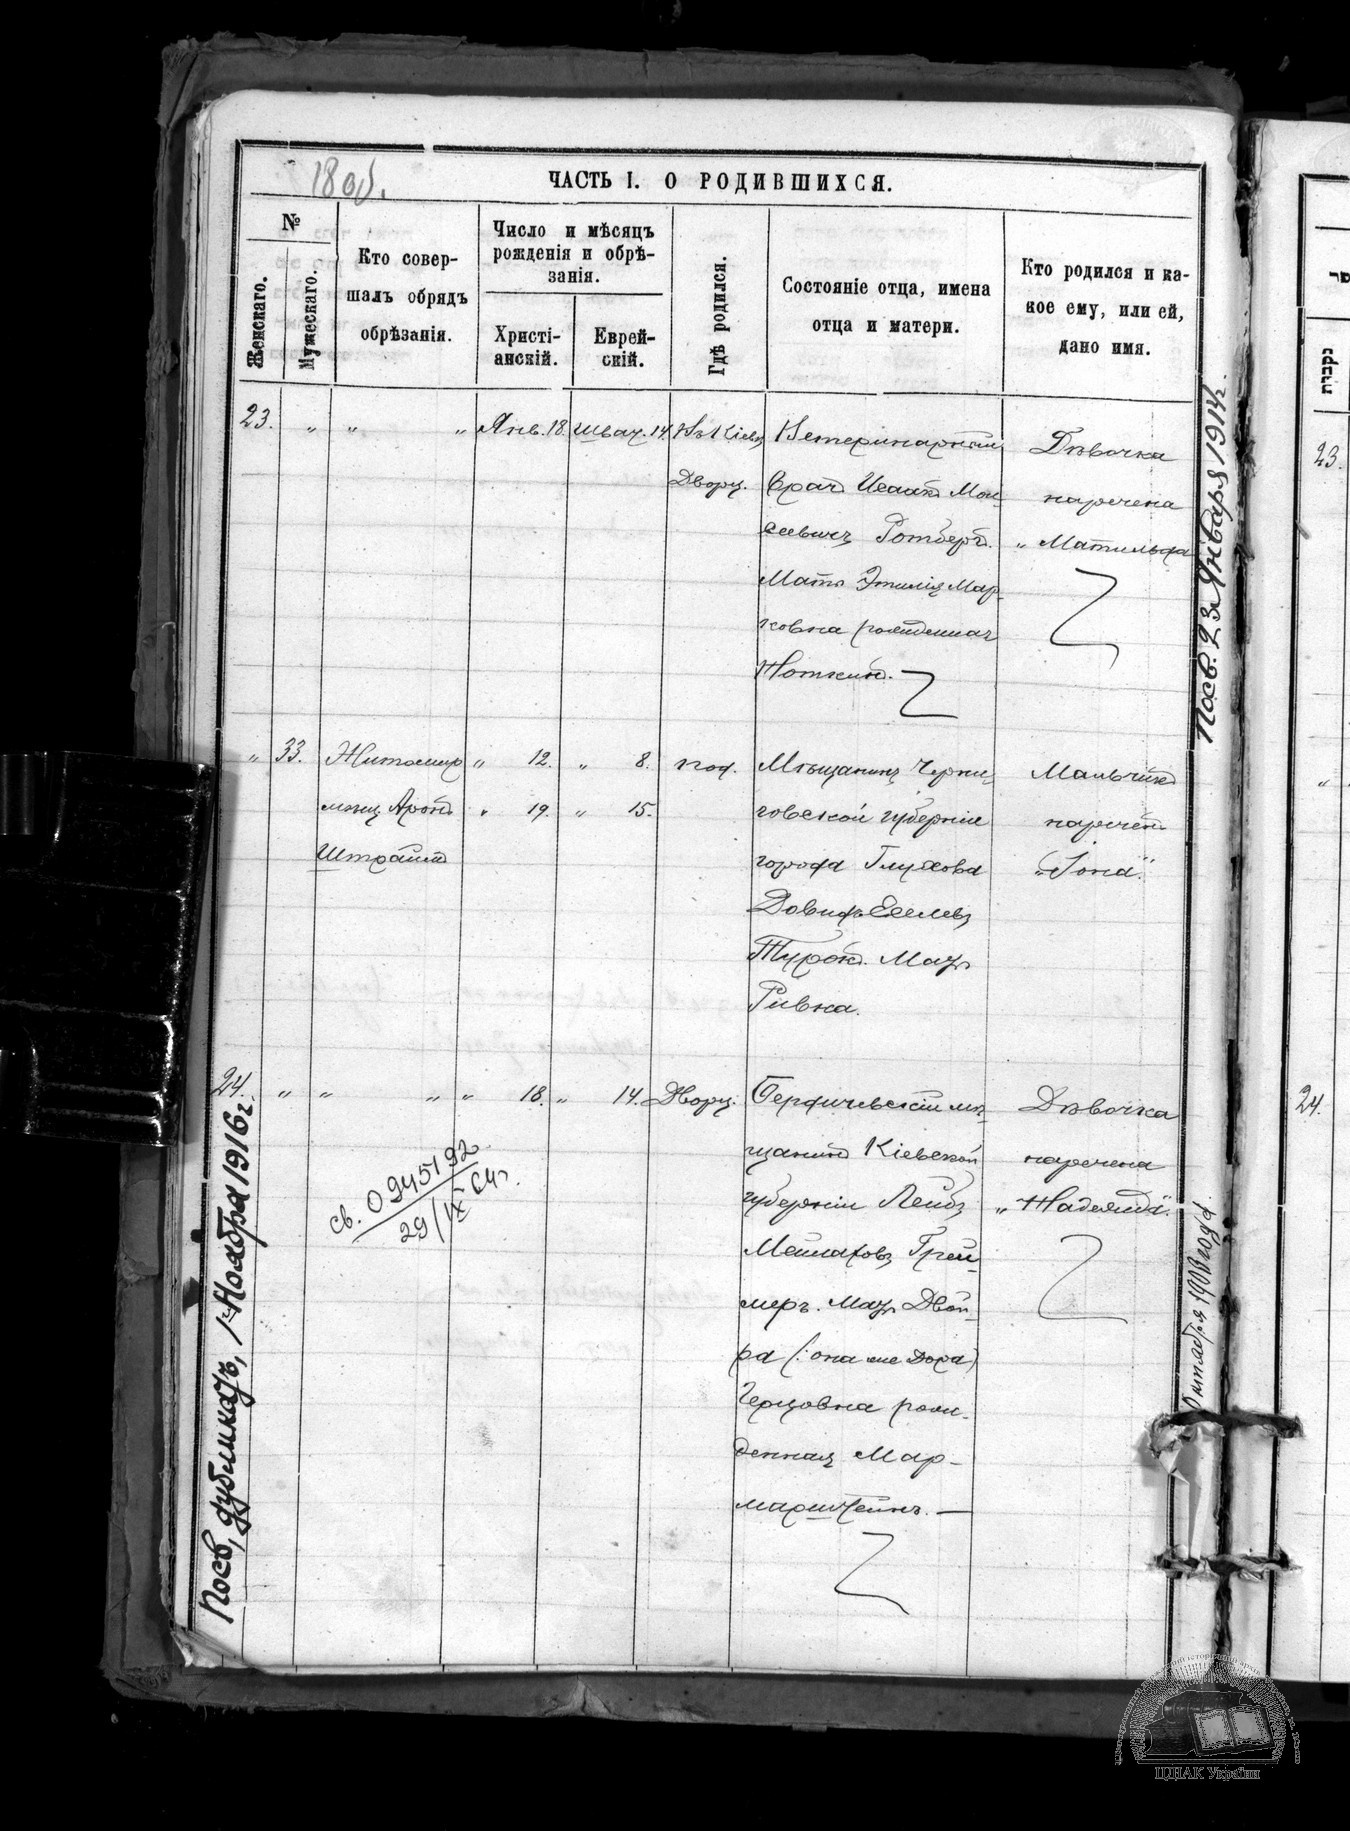 18 об.
ЧАСТЬ I. О РОДИВШИХСЯ.
№
Женскаго.
Мужескаго.
Кто совер-
шалъ обрядъ
обрѣзанія.
Число и мѣсяцъ
рожденія и обрѣ-
занія.
Христі-
анскій.
Еврей-
скій.
Гдѣ родился.
Состояніе отца, имена
отца и матери.
Кто родился и ка-
кое ему, или ей,
дано имя.
23. " " " Янв. 18. Шват. 14. Въ Кіевѣ
Дворц.
Ветеринарный
врачъ Исаакъ Мои-
сеевичъ Ротбергъ.
Мать Эмилія Мар-
ковна рожденная
Ноткинъ.
Дѣвочка
наречена
"Матильда
Посв. 23 Января 1914 г.
" 33. Житомир
мѣщ. Аронъ
Штрайм
" 12. " 8.
" 19. " 15.
под.
Мѣщанинъ Черни-
говской губерніи
города Глухова
Довидъ Еселевъ
Турокъ. Мать
Ривка.
Мальчикъ
нареченъ
"Іона".
24. " " " " 18. " 14. Дворц.
Бердичевскій мѣ-
щанинъ Кіевской
губерніи Лейбъ
Мейлаховъ Грей-
меръ. Мать Двой-
ра (: она же Дора)
Герцовна рож-
денная Мар-
марштейнъ. —
Дѣвочка
наречена
"Надежда".
св. 0945192
29/IX 64 г.
Посв, дубликатъ, 1 Ноября 1916 г
Октября 1908 года
23.
24.
נקבות
ЦДІАК України